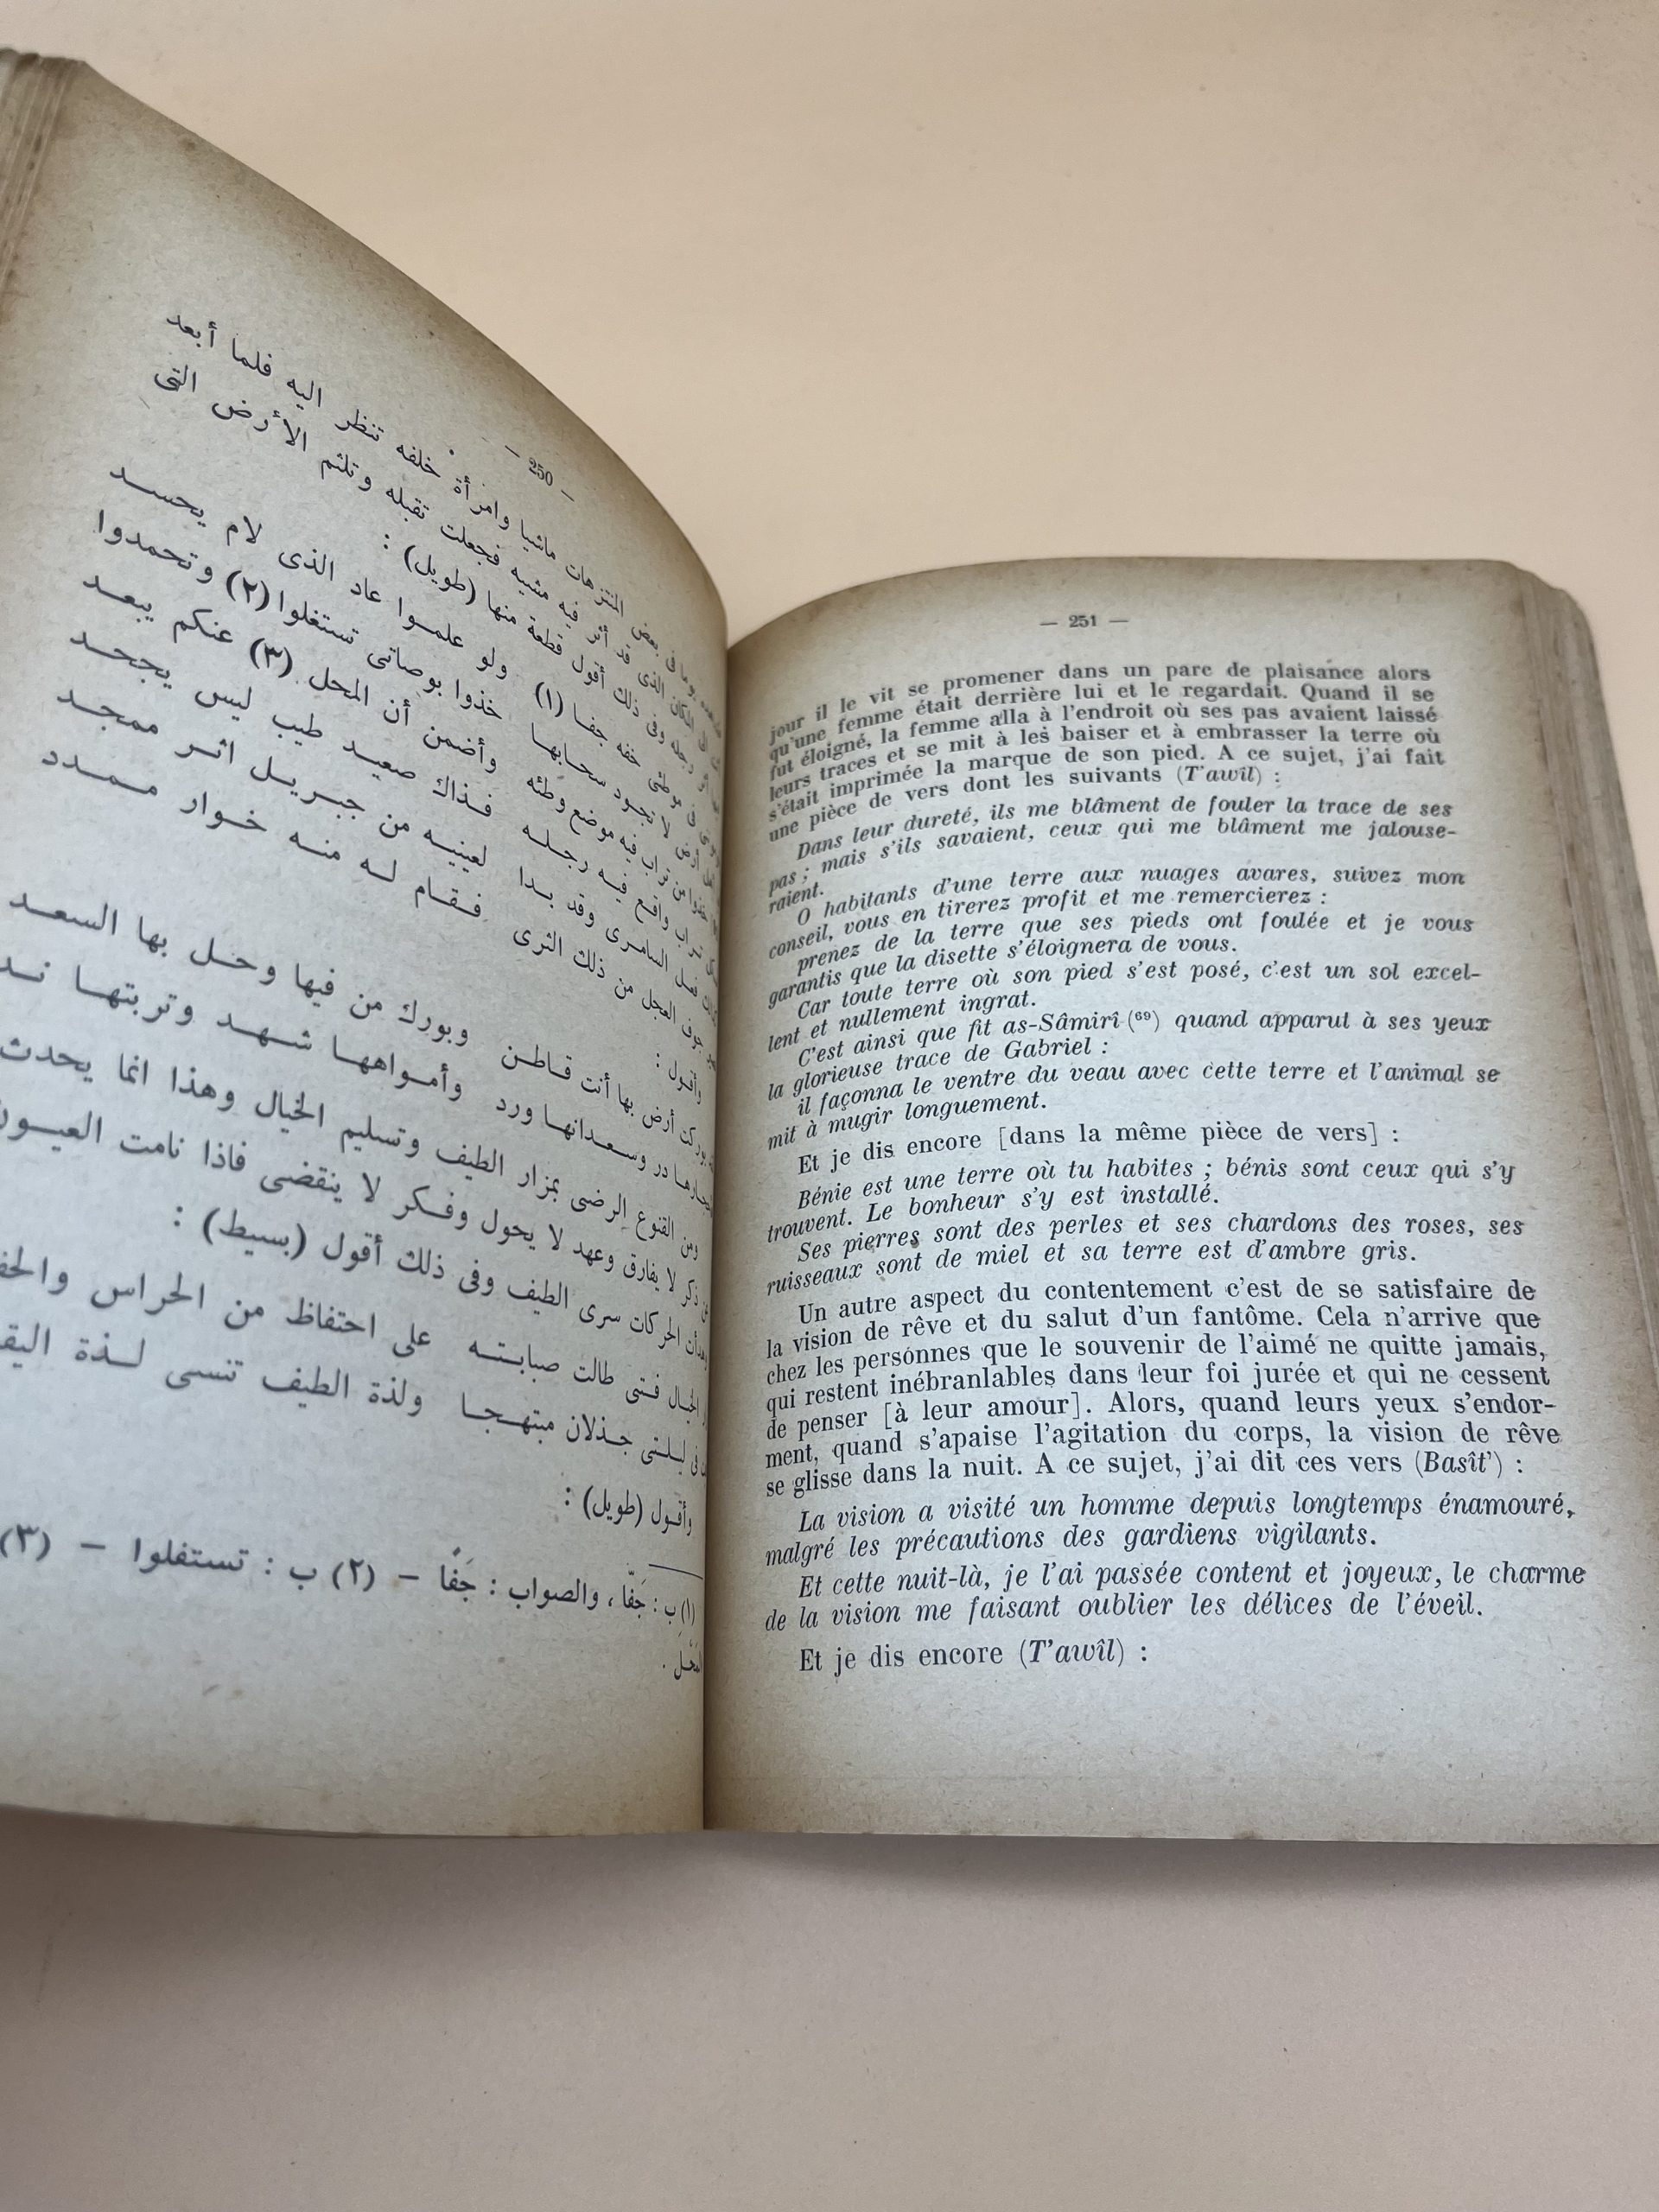 — 250 —
المتنزهات ماشيا وامرأة خلفه تنظر اليه فلما أبعد
المكان الذى قد أثر فيه مشيه فجعلت تقبله وتلثم الأرض التى
رجله وفى ذلك أقول قطعة منها (طويل) :
فى موطئى خفه جفا (١) ولو علمـوا عاد الذى لام يحسـد
أرض لا تجود سحابهـا خذوا بوصاتى تستغلوا (٢) وتحمدوا
خذوا من تراب فيه موضع وطئه وأضمن أن المحل (٣) عنكم يبعـد
تراب واقـع فيـه رجـلـه فـذاك صعيـد طيب ليس يجحـد
فعل السامـرى وقد بـدا لعينيـه من جبـريـل اثـر ممجـد
جوف العجل من ذلك الثرى فـقـام لـه منـه خـوار مـمـدد
وأقـول :
بوركت أرض بها أنت قـاطـن وبورك من فيها وحـل بها السعـد
در وسـعـدانهـا ورد وأمـواههـا شـهـد وتربتهـا
ومن القنوع الرضى بمزار الطيف وتسليم الخيال وهذا انما يحدث
ذكر لا يفارق وعهد لا يحول وفـكر لا ينقضى فاذا نامت العيـون
وهدأت الحركات سرى الطيف وفى ذلك أقول (بسيط) :
الخيـال فـتى طالت صبابـتـه على احتفاظ من الحراس
فى ليـلـتى جـذلان مبتهـجـا ولذة الطيف تنسى لـذة
وأقـول (طويل) :
(١) ب : جَفّا ، والصواب : جَفًا — (٢) ب : تستفلوا — (٣)
المَحَلّ .
— 251 —
jour il le vit se promener dans un parc de plaisance alors
qu'une femme était derrière lui et le regardait. Quand il se
fut éloigné, la femme alla à l'endroit où ses pas avaient laissé
leurs traces et se mit à les baiser et à embrasser la terre où
s'était imprimée la marque de son pied. A ce sujet, j'ai fait
une pièce de vers dont les suivants (T'awîl) :
Dans leur dureté, ils me blâment de fouler la trace de ses
pas ; mais s'ils savaient, ceux qui me blâment me jalouse-
raient.
O habitants d'une terre aux nuages avares, suivez mon
conseil, vous en tirerez profit et me remercierez :
prenez de la terre que ses pieds ont foulée et je vous
garantis que la disette s'éloignera de vous.
Car toute terre où son pied s'est posé, c'est un sol excel-
lent et nullement ingrat.
C'est ainsi que fit as-Sâmirî (⁶⁹) quand apparut à ses yeux
la glorieuse trace de Gabriel :
il façonna le ventre du veau avec cette terre et l'animal se
mit à mugir longuement.
Et je dis encore [dans la même pièce de vers] :
Bénie est une terre où tu habites ; bénis sont ceux qui s'y
trouvent. Le bonheur s'y est installé.
Ses pierres sont des perles et ses chardons des roses, ses
ruisseaux sont de miel et sa terre est d'ambre gris.
Un autre aspect du contentement c'est de se satisfaire de
la vision de rêve et du salut d'un fantôme. Cela n'arrive que
chez les personnes que le souvenir de l'aimé ne quitte jamais,
qui restent inébranlables dans leur foi jurée et qui ne cessent
de penser [à leur amour]. Alors, quand leurs yeux s'endor-
ment, quand s'apaise l'agitation du corps, la vision de rêve
se glisse dans la nuit. A ce sujet, j'ai dit ces vers (Basît') :
La vision a visité un homme depuis longtemps énamouré,
malgré les précautions des gardiens vigilants.
Et cette nuit-là, je l'ai passée content et joyeux, le charme
de la vision me faisant oublier les délices de l'éveil.
Et je dis encore (T'awîl) :